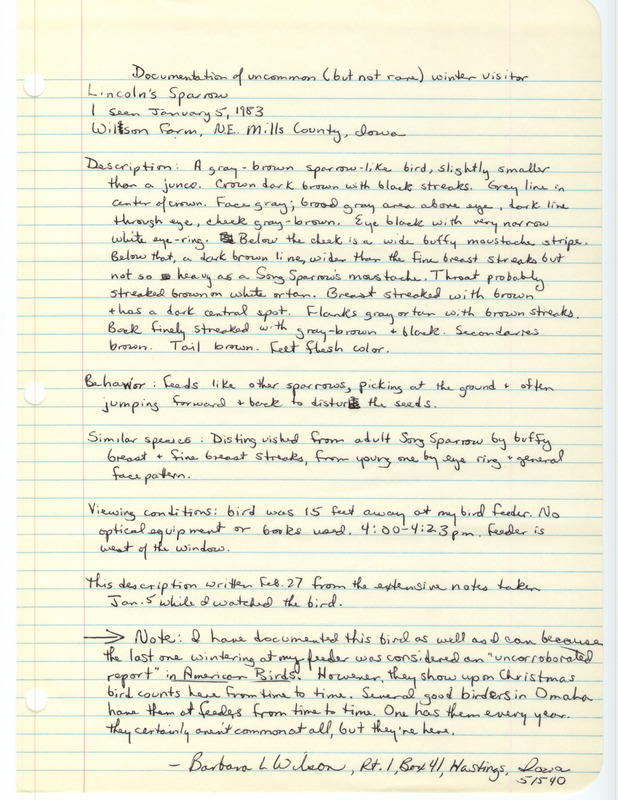 Documentation of uncommon (but not rare) winter visitor
Lincoln's Sparrow
1 seen January 5, 1983
Wilson Farm, N.E. Mills County, Iowa
Description: A gray-brown sparrow-like bird, slightly smaller
than a junco. Crown dark brown with black streaks. Grey line in
center of crown. Face gray; broad gray area above eye, dark line
through eye, cheek gray-brown. Eye black with very narrow
white eye-ring. Below the cheek is a wide buffy moustache stripe.
Below that, a dark brown line, wider than the fine breast streaks but
not so heavy as a Song Sparrow's moustache. Throat probably
streaked brown on white or tan. Breast streaked with brown
+ has a dark central spot. Flanks gray or tan with brown streaks.
Back finely streaked with gray-brown + black. Secondaries
brown. Tail brown. Feet flesh color.
Behavior: Feeds like other sparrows, picking at the ground + often
jumping forward + back to disturb the seeds.
Similar species: Distinguished from adult Song Sparrow by buffy
breast + fine breast streaks, from young one by eye ring + general
face pattern.
Viewing conditions: bird was 15 feet away at my bird feeder. No
optical equipment or books used. 4:00-4:23 pm. Feeder is
west of the window.
This description written Feb. 27 from the extensive notes taken
Jan. 5 while I watched the bird.
→ Note: I have documented this bird as well as I can because
the last one wintering at my feeder was considered an "uncorroborated
report" in American Birds. However, they show up on Christmas
bird counts here from time to time. Several good birders in Omaha
have them at feeders from time to time. One has them every year.
They certainly aren't common at all, but they're here.
- Barbara L Wilson, Rt. 1, Box 41, Hastings, Iowa
51540